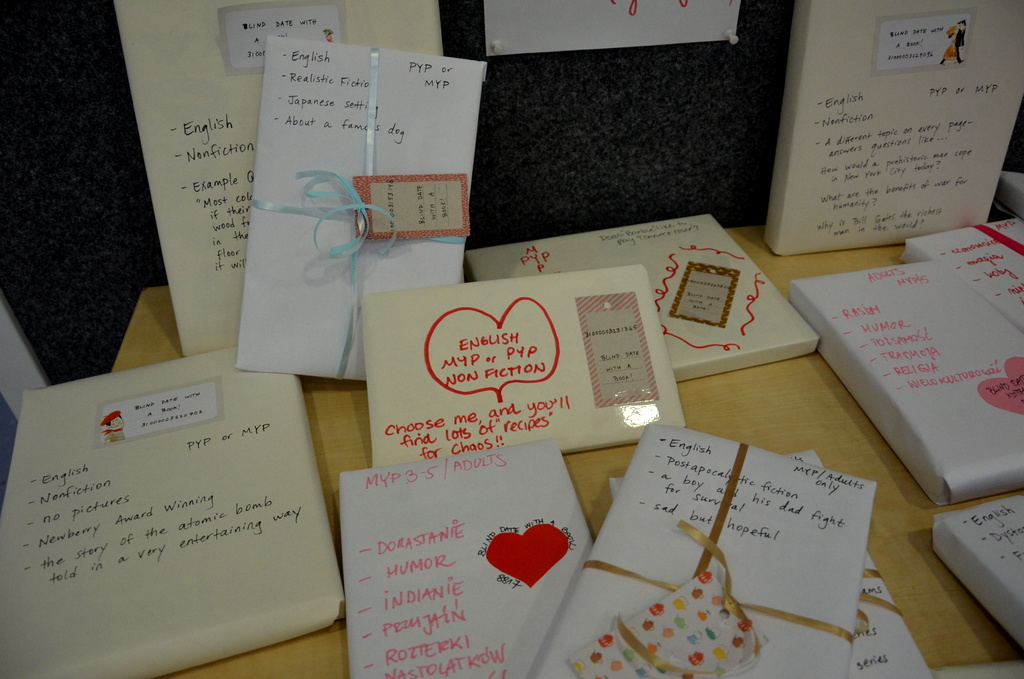 BLIND DATE WITH
A BOOK!
- English
- Nonfiction
- Example
"Most
if their
wood
in the
floor
it will
- English
- Realistic Fiction
- Japanese setting
- About a famous dog
PYP or
MYP
BLIND DATE
WITH A
BOOK!
BLIND DATE WITH
A BOOK!
- English
- Nonfiction
PYP or MYP
- A different topic on every page-
answers questions like...
How would a prehistoric man cope
in New York City today?
What are the benefits of war for
humanity?
Why is Bill Gates the richest
man in the world?
MYP
PYP
BLIND DATE
WITH A
BOOK!
ENGLISH
MYP or PYP
NON FICTION
Choose me, and you'll
find lots of "recipes"
for chaos!!
BLIND DATE
WITH A
BOOK!
ADULTS
MYP/5
- RASIZM
- HUMOR
- TOŻSAMOŚĆ
- TRADYCJA
- RELIGIA
- WIELOKULTUROWOŚĆ
BLIND
MYP
BLIND DATE WITH
A BOOK!
PYP or MYP
- English
- Nonfiction
- no pictures
- Newberry Award Winning
- the story of the atomic bomb
told in a very entertaining way
MYP 3-5 / ADULTS
- DORASTANIE
- HUMOR
- INDIANIE
- PRZYJAŹŃ
- ROZTERKI
NASTOLATKÓW
BLIND DATE WITH A BOOK!
8817
- English
- Postapocalptic fiction
- a boy and his dad fight
for survival
- sad but hopeful
MYP/Adults
only
series
- English